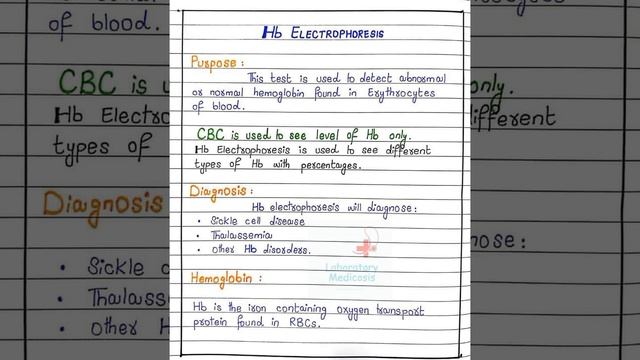 Hb ELECTROPHORESIS
Purpose :
This test is used to detect abnormal
or normal hemoglobin found in Erythrocytes
of blood.
CBC is used to see level of Hb only.
Hb Electrophoresis is used to see different
types of Hb with percentages.
Diagnosis :
Hb electrophoresis will diagnose :
• Sickle cell disease
• Thalassemia
• other Hb disorders.
Laboratory
Medicosis
Hemoglobin :
Hb is the iron containing oxygen transport
protein found in RBCs.
of blood.
CBC is u
Hb Electro
types of
Diagnosis
• Sickle c
• Thalass
• other H
only.
ifferent
nose :